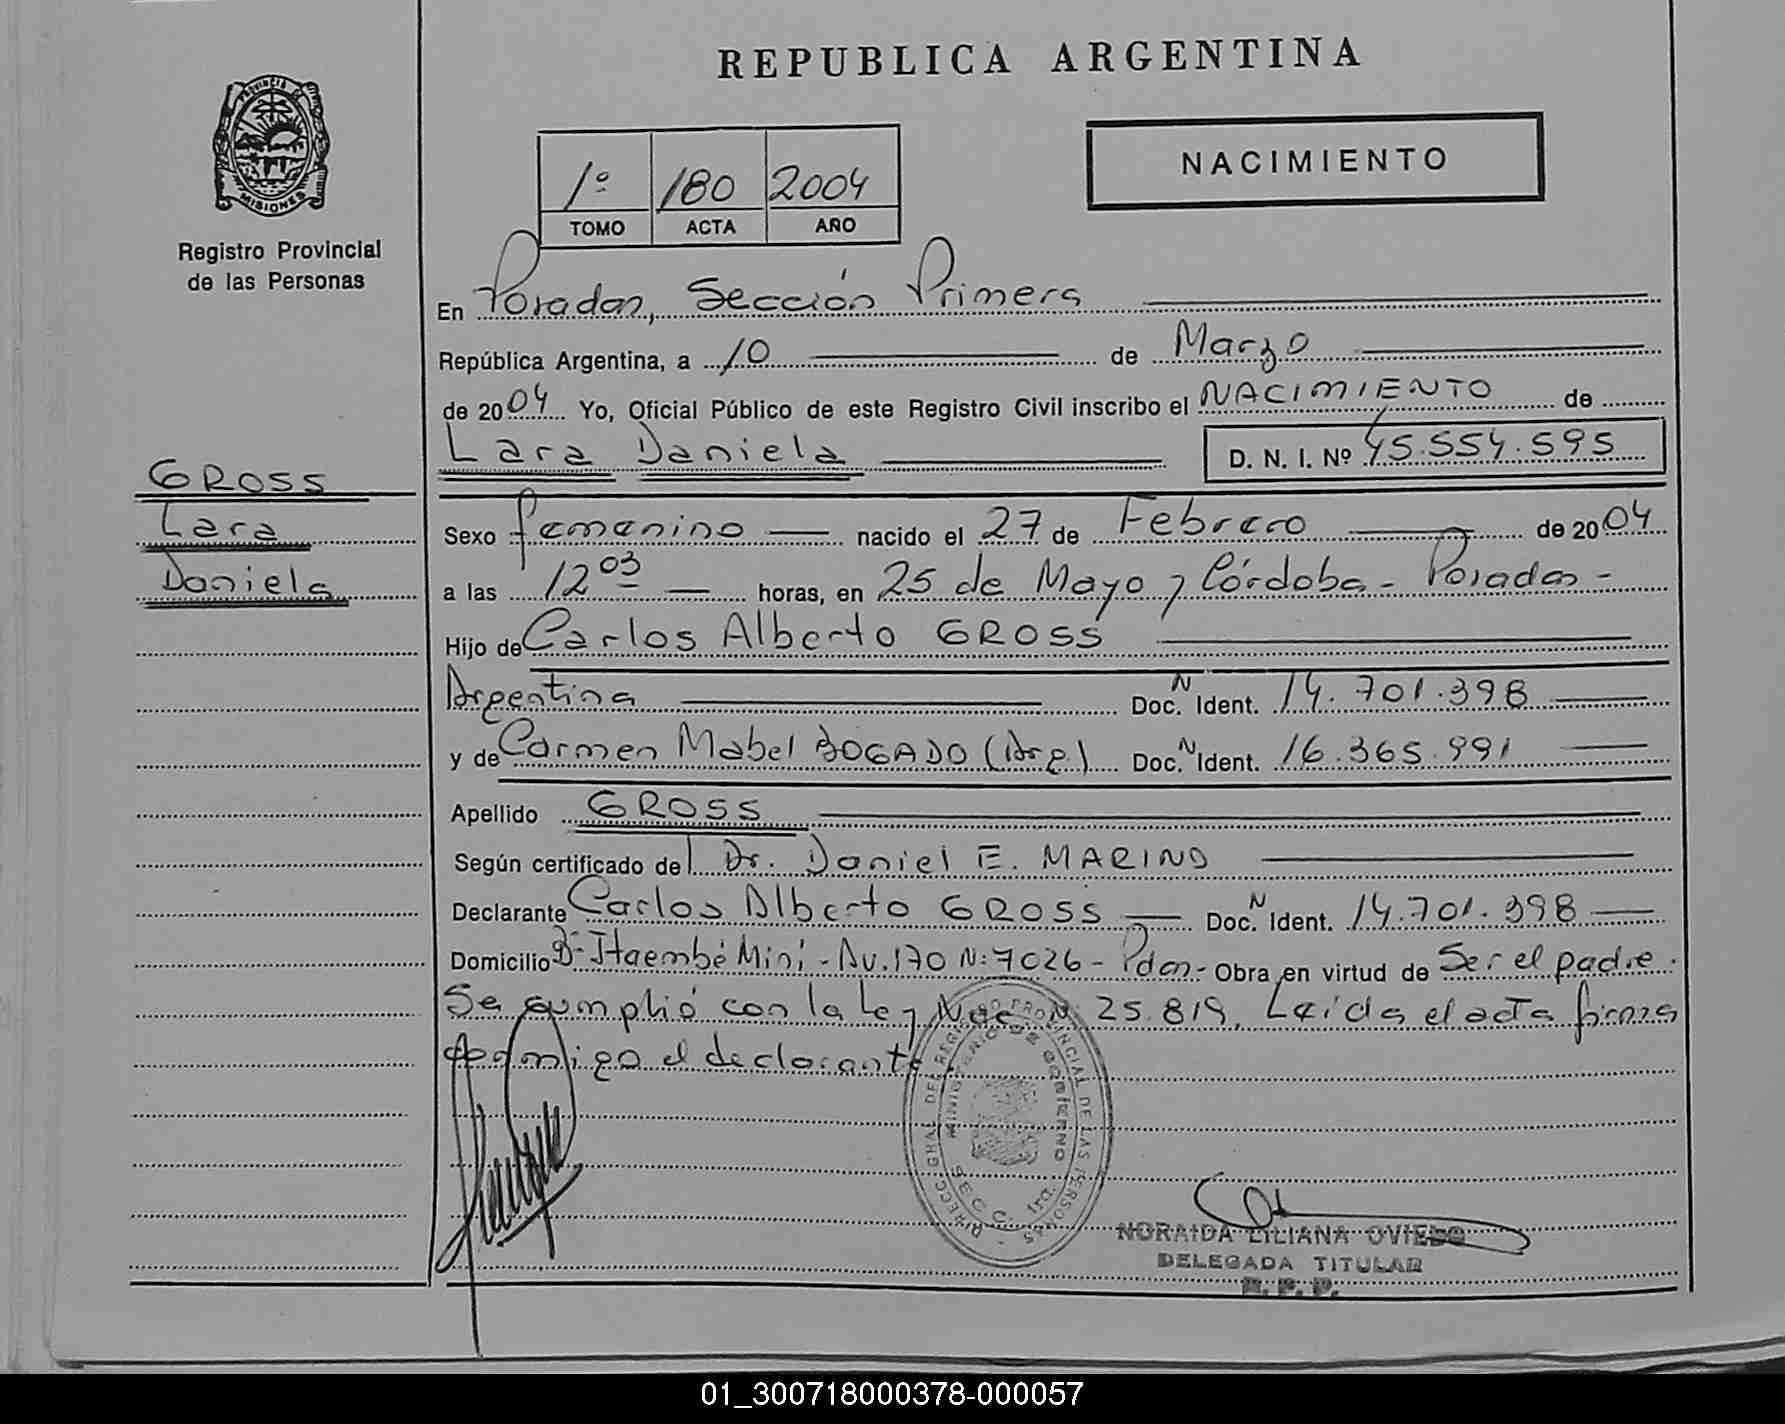 REPUBLICA ARGENTINA
PROVINCIA DE
MISIONES
Registro Provincial
de las Personas
1º 180 2004
TOMO ACTA AÑO
NACIMIENTO
En Posadas, Sección Primera
República Argentina, a 10 de Marzo
de 2004 Yo, Oficial Público de este Registro Civil inscribo el NACIMIENTO de
Lara Daniela D. N. I. Nº 45.554.595
GROSS
Lara
Daniela
Sexo femenino nacido el 27 de Febrero de 2004
a las 12 03 horas, en 25 de Mayo y Córdoba - Posadas -
Hijo de Carlos Alberto GROSS
Argentina Doc. N Ident. 14.701.398
y de Carmen Mabel BOGADO (Arg.) Doc. N Ident. 16.365.991
Apellido GROSS
Según certificado del Dr. Daniel E. MARINO
Declarante Carlos Alberto GROSS Doc. N Ident. 14.701.398
Domicilio Bº Itaembé Miní - Av. 170 Nº 7026 - Pdas - Obra en virtud de Ser el padre.
Se cumplió con la Ley Nac. Nº 25.819. Leída el acta firma
conmigo el declarante
DIRECC. GRAL. DEL REGISTRO PROVINCIAL DE LAS PERSONAS
MINISTERIO DE GOBIERNO
SECC. 1ra.
NORAIDA LILIANA OVIEDO
DELEGADA TITULAR
R. P. P.
01_300718000378-000057